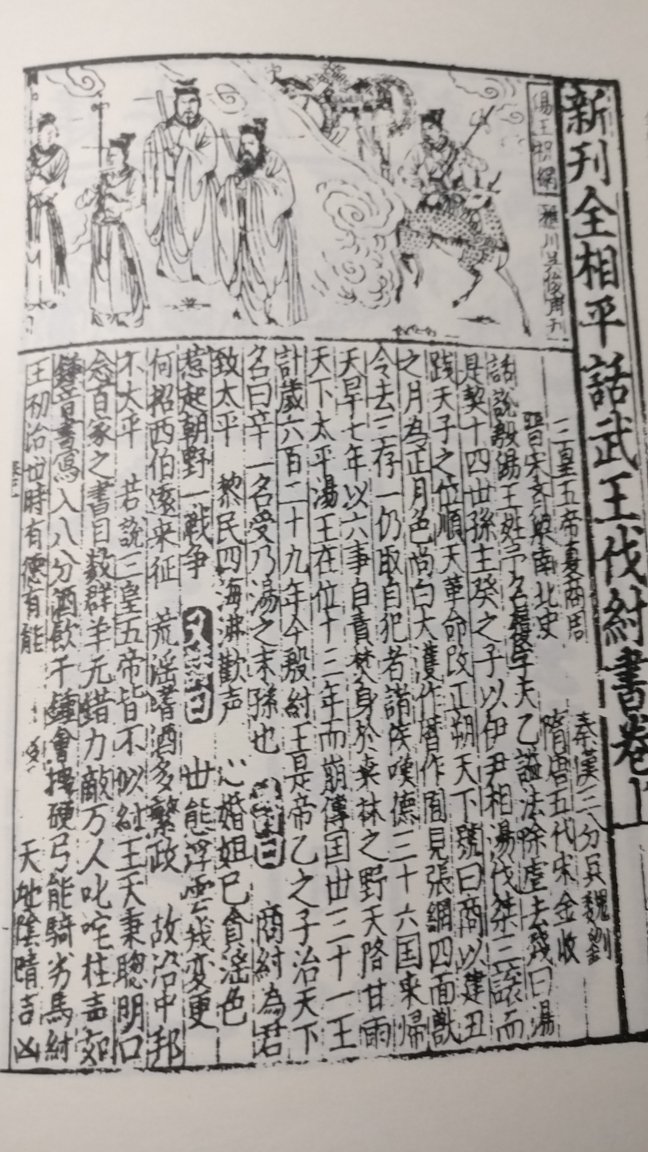 新刊全相平話武王伐紂書卷上
湯王祝網
三皇五帝夏商周
秦漢三分吳魏劉
晋宋齊梁南北史
隋唐五代宋金收
話說殷湯王姓子名履字天乙謚法除虐去殘曰湯
是契十四世孫主癸之子以伊尹相湯伐桀三讓而
踐天子之位順天革命改正朔天下號曰商以建丑
之月為正月色尚白大濩作 見張網四面獸
令去三存一仍取自犯者諸侯嘆德三十六国來歸
天旱七年以六事自責焚身於桑林之野天降甘雨
天下太平湯王在位十三年而崩傳国卅三十一王
計歲六百二十九年今殷紂王是帝乙之子治天下
名曰辛一名受乃湯之末孫也
商紂為君
致太平 黎民四海沸歡声 心婚妲己貪淫色
惹起朝野一戰争 又詩曰 世能浮雲幾變更
何招西伯遠來征 荒淫嗜酒多繁政 故治中邦
不太平 若說三皇五帝皆不似紂王天秉聰明口
念百家之書目數群羊无錯力敵万人叱咤柱 如
鍾音書寫入八分酒飲千鍾會拽硬弓能騎劣馬紂
王初治世時有德有能 天地陰晴吉凶